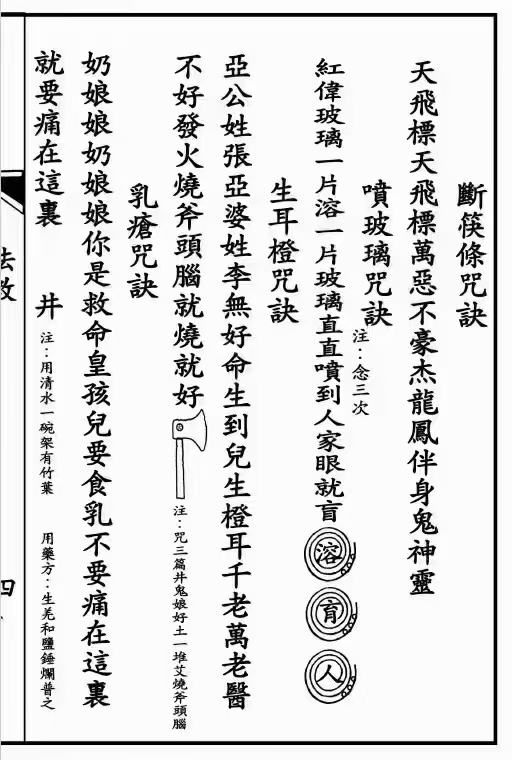 斷筷條咒訣
天飛標天飛標萬惡不豪杰龍鳳伴身鬼神靈
噴玻璃咒訣
注：念三次
紅偉玻璃一片溶一片玻璃直直噴到人家眼就盲
溶
肓
人
生耳橙咒訣
亞公姓張亞婆姓李無好命生到兒生橙耳千老萬老醫
不好發火燒斧頭腦就燒就好
注：咒三篇井鬼娘好土一堆艾燒斧頭腦
乳瘡咒訣
奶娘娘奶娘娘你是救命皇孩兒要食乳不要痛在這裏
就要痛在這裏 井
注：用清水一碗架有竹葉 用藥方：生羌和鹽錘爛普之
法教
四